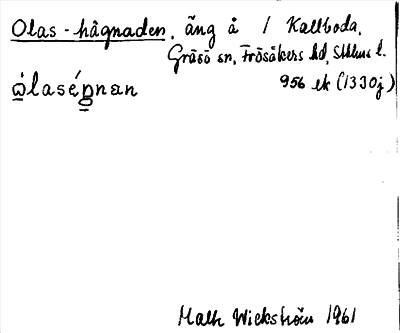 Olas-hågnaden, äng å / Kallboda,
Gräsö sn, Frösåkers hd, Sthlms l.
956 ek (1330j)
Math Wickström 1961